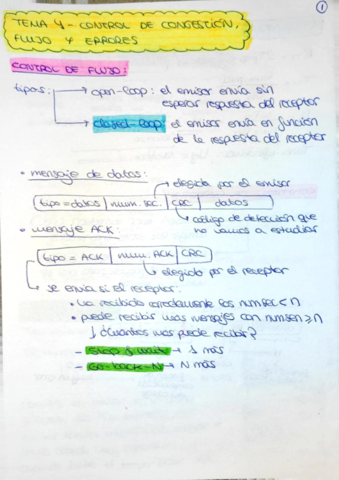 1
TEMA 4 - CONTROL DE CONGESTIÓN,
FLUJO Y ERRORES
CONTROL DE FLUJO:
tipos: → open-loop: el emisor envía sin
esperar respuesta del receptor
→ closed-loop: el emisor envía en función
de la respuesta del receptor
• mensaje de datos: → elegida por el emisor
tipo=datos | num. sec. | CRC | datos
→ código de detección que
no vamos a estudiar
• mensaje ACK:
tipo = ACK | num. ACK | CRC
→ elegido por el receptor
→ se envía si el receptor:
• ha recibido correctamente los numsec < n
• puede recibir más mensajes con numsec ≥ n
↓ ¿Cuántos más puede recibir?
- stop & wait → 1 más
- Go-back-N → N más